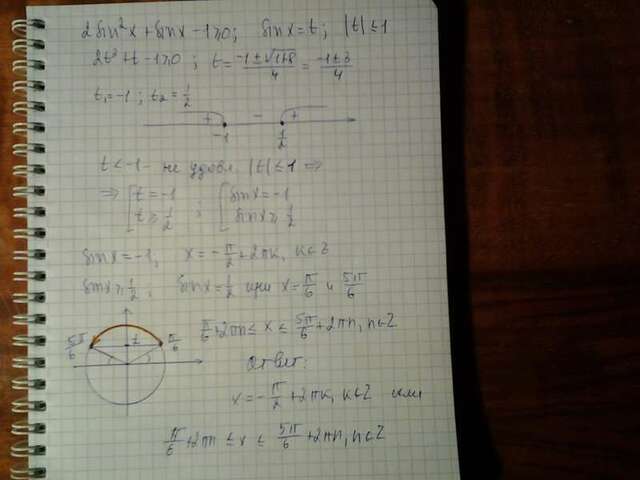 2sin²x + sinx - 1 ≥ 0; sinx = t; |t| ≤ 1
2t² + t - 1 ≥ 0; t = (-1 ± √(1+8))/4 = (-1 ± 3)/4
t₁ = -1; t₂ = 1/2
+ - +
-1 1/2
t < -1 - не удовл. |t| ≤ 1 ⇒
⇒ [ t = -1 ; [ sinx = -1
t ≥ 1/2 sinx ≥ 1/2
sinx = -1, x = -π/2 + 2πk, k∈Z
sinx ≥ 1/2; sinx = 1/2 при x = π/6 и 5π/6
5π/6 π/6
π/6 + 2πn ≤ x ≤ 5π/6 + 2πn, n∈Z
Ответ:
x = -π/2 + 2πk, k∈Z или
π/6 + 2πn ≤ x ≤ 5π/6 + 2πn, n∈Z